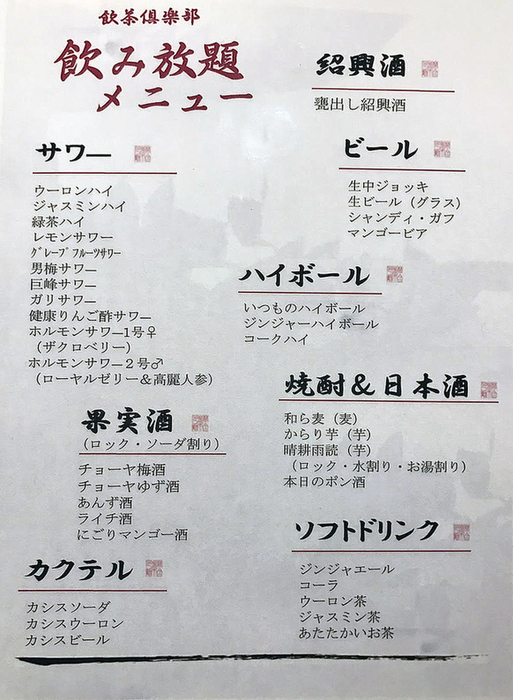 飲茶倶楽部
飲み放題
メニュー
紹興酒
甕出し紹興酒
サワー
ウーロンハイ
ジャスミンハイ
緑茶ハイ
レモンサワー
グレープフルーツサワー
男梅サワー
巨峰サワー
ガリサワー
健康りんご酢サワー
ホルモンサワー1号♀
（ザクロベリー）
ホルモンサワー２号♂
（ローヤルゼリー＆高麗人参）
ビール
生中ジョッキ
生ビール（グラス）
シャンディ・ガフ
マンゴービア
ハイボール
いつものハイボール
ジンジャーハイボール
コークハイ
果実酒
（ロック・ソーダ割り）
チョーヤ梅酒
チョーヤゆず酒
あんず酒
ライチ酒
にごりマンゴー酒
焼酎＆日本酒
和ら麦（麦）
からり芋（芋）
晴耕雨読（芋）
（ロック・水割り・お湯割り）
本日のポン酒
カクテル
カシスソーダ
カシスウーロン
カシスビール
ソフトドリンク
ジンジャエール
コーラ
ウーロン茶
ジャスミン茶
あたたかいお茶